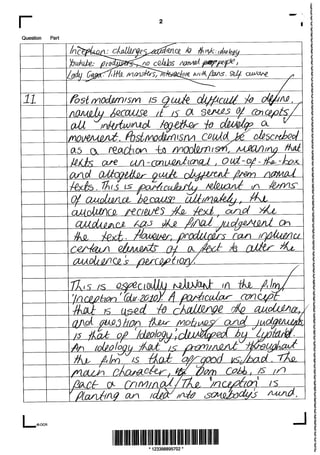 2
Question Part
Inception: challenges audience to think, ideology
Youtube: producers, no celebs normal people,
Lady Gaga: little monsters, interactive with fans. Self aware
11 Postmodernism is quite difficult to define,
namely because it is a series of concepts
all intertwined together to develop a
movement. Postmodernism could be described
as a reaction to modernism, meaning that
texts are un-conventional, out-of-the-box
and altogether quite different from normal
texts. This is particularly relevant in terms
of audience because ultimately, the
audience recieves the text, and the
audience has the final judgement on
the text. However, producers can influence
certain elements of a text to alter the
audience's perception.
This is especially relevant in the film
'Inception' (dir. 2010). A particular concept
that is used to challenge the audience,
and question their motives and judgements
is that of ideology, developed by Lyotard.
An ideology that is prominent throughout
the film is that of good vs. bad. The
main character, Dom Cobb, is in
fact a criminal. The 'inception' is
planting an idea into somebody's mind.
4-OCR
* 123398895702 *